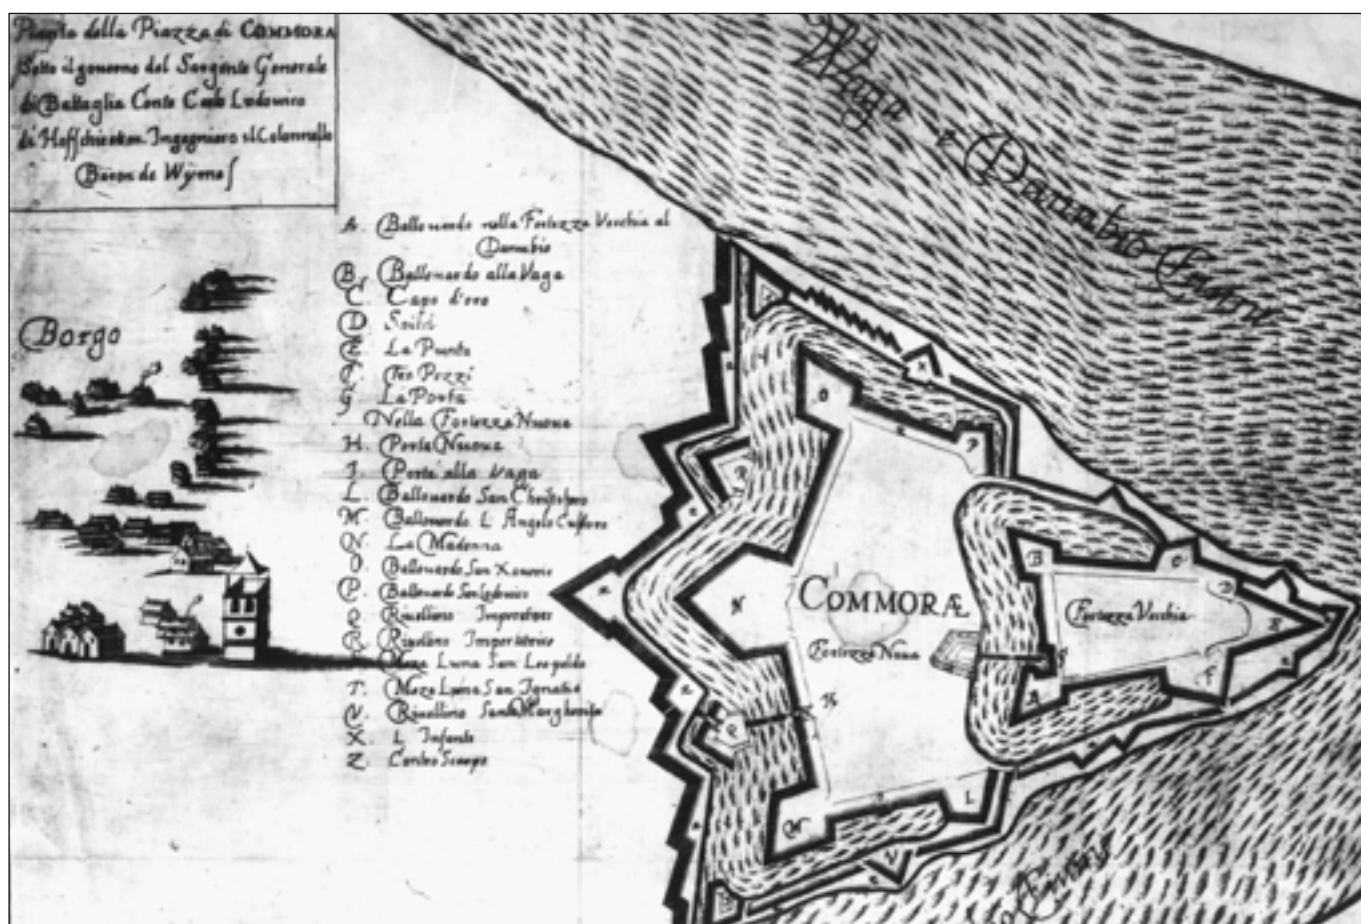 Pianta della Piazza di COMMORA
Sotto il governo del Sargente Generale
di Battaglia Conte Carlo Lodovico
di Hoffchirchen Ingegniero il Colonnello
Baron de Wÿmes
A. Ballouardo nella Fortezza Vecchia al
Danubio
B. Ballouardo alla Vaga
C. Capo d'oro
D.
E. La Punta
F. Tre Pezzi
G. La Porta
Nella Fortezza Nuoua
H. Porta Nuoua
I. Porta alla Vaga
L. Ballouardo San Christoforo
M. Ballouardo L Angelo Custore
N. La Madonna
O. Ballouardo San Xauerio
P. Ballouardo San Lodouico
Q Riuellino Imperatore
R. Riuellino Imperatrice
Meza Luna San Leopoldo
T. Meza Luna San Ignatio
V. Riuellino Santa Margherita
X. L Infante
Z. Contra Scarpa
Borgo
Vaga e Danubio Fiume
COMMORÆ
Fortezza Noua
Fortezza Vecchia
O
P
X
R
N
H
Q
M
L
V
B
C
D
E
F
A
G
Fiume